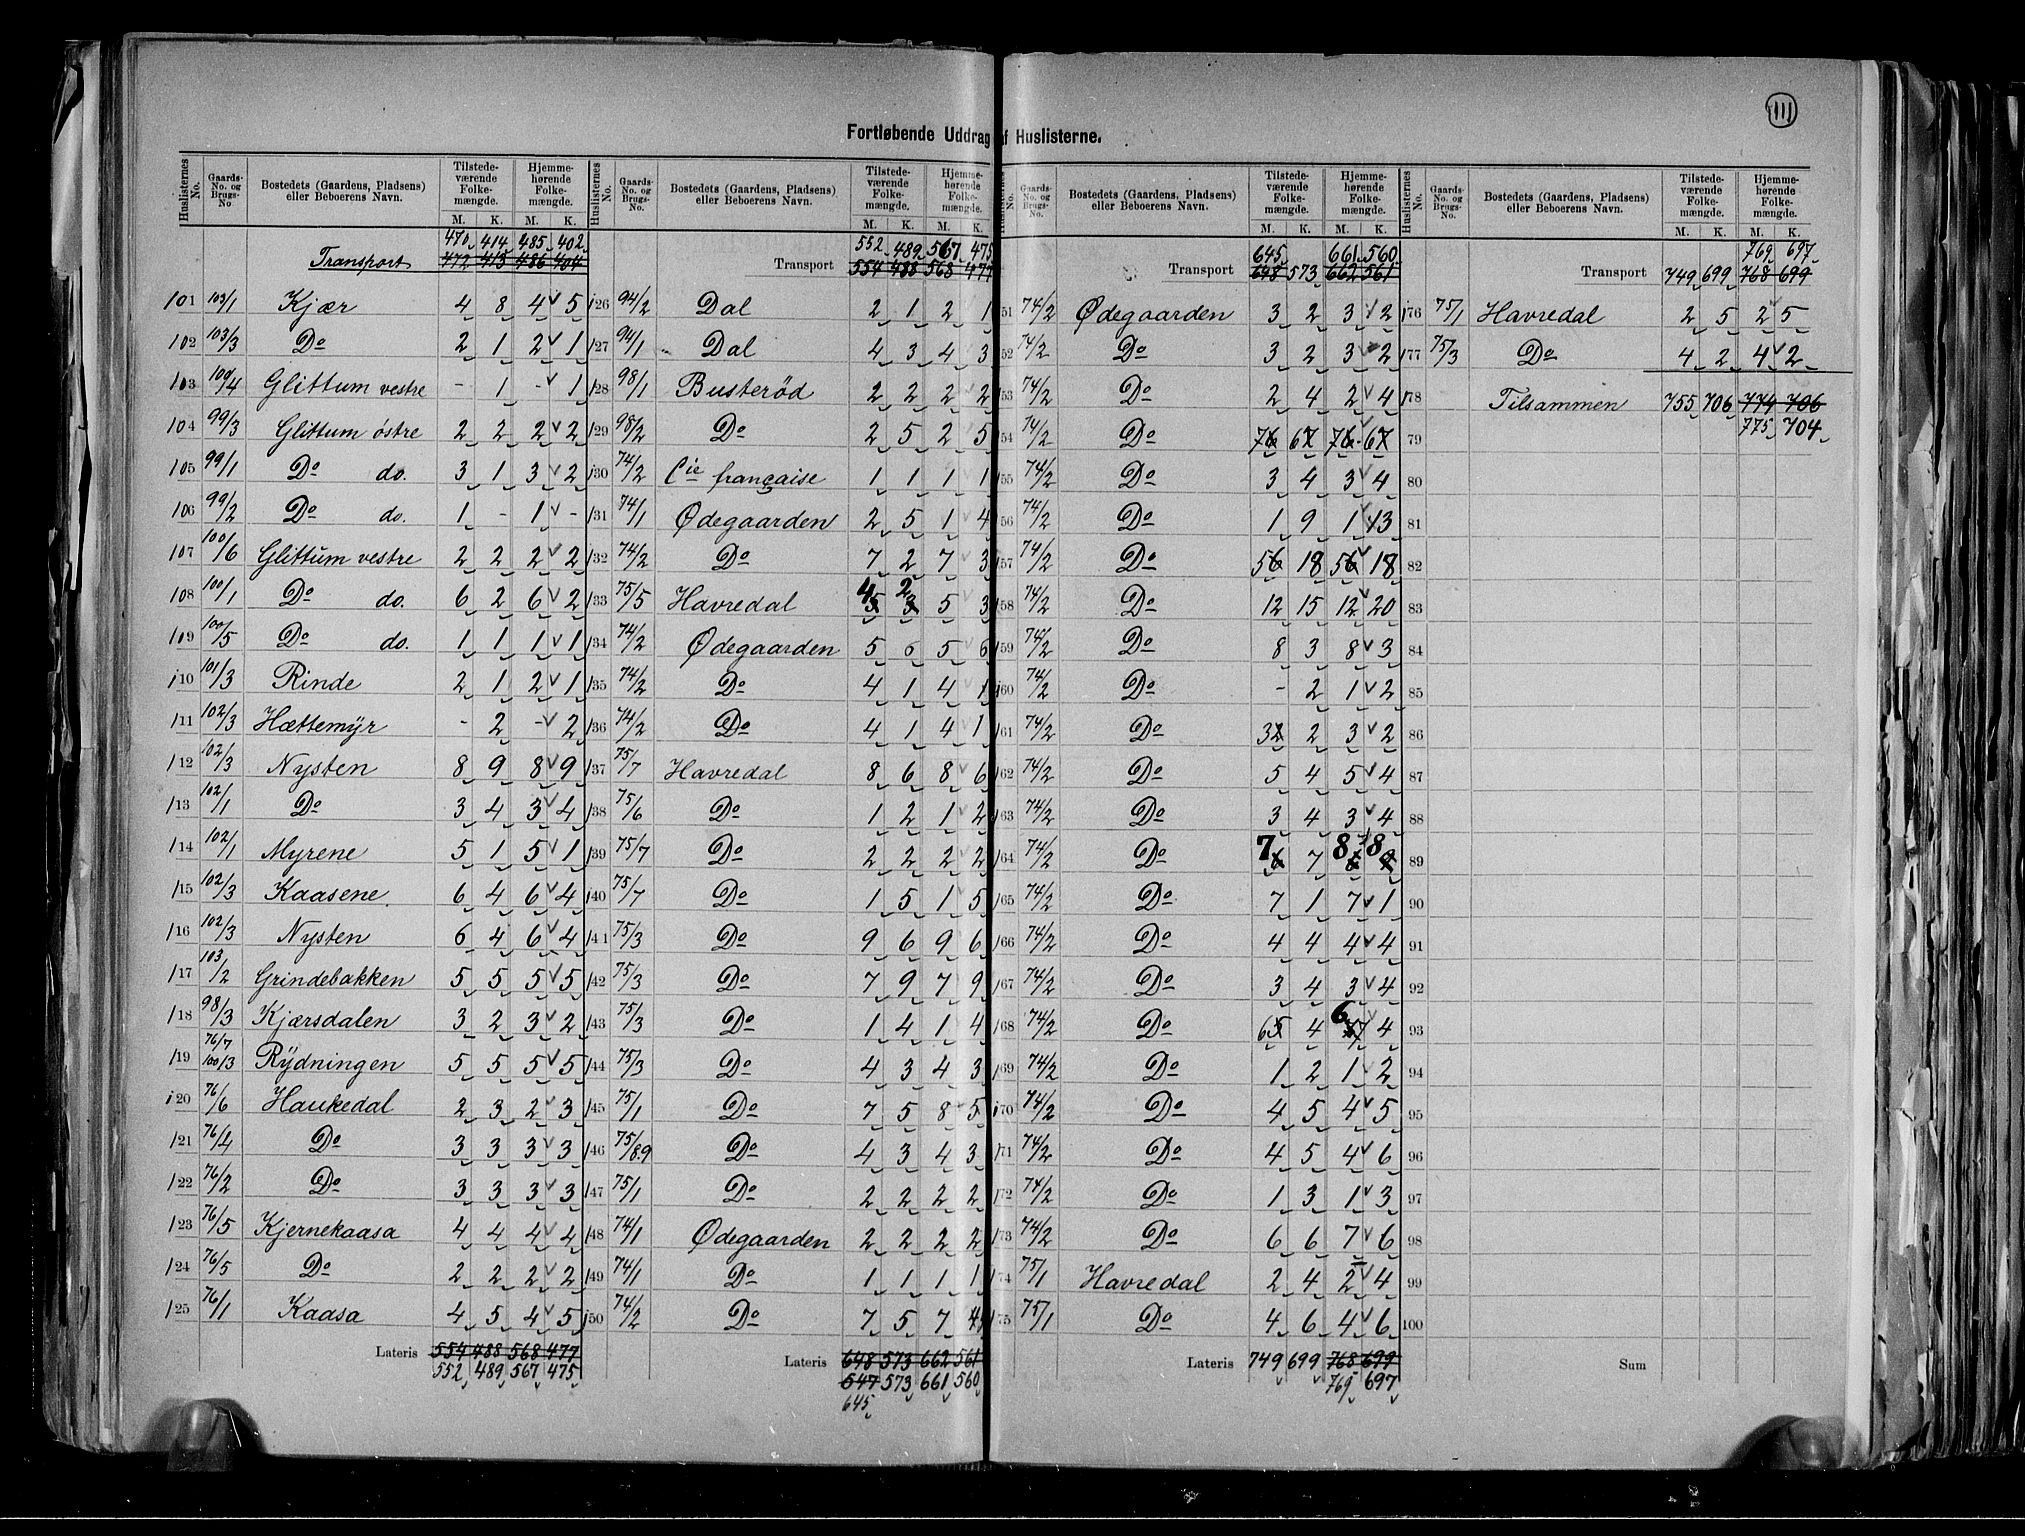 111
Fortløbende Uddrag af Huslisterne.
Huslisternes No. | Gaards-No. og Brugs-No. | Bostedets (Gaardens, Pladsens) eller Beboerens Navn. | Tilstedeværende Folkemængde. M. K. | Hjemmehørende Folkemængde. M. K.
470 414 485 402
Transport 472 413 486 404
101 103/1 Kjær 4 8 4 5
102 103/3 Do 2 1 2 1
103 100/4 Glittum vestre - 1 - 1
104 99/3 Glittum østre 2 2 2 2
105 99/1 Do do. 3 1 3 2
106 99/2 Do do. 1 - 1 -
107 100/6 Glittum vestre 2 2 2 2
108 100/1 Do do. 6 2 6 2
109 100/5 Do do. 1 1 1 1
110 101/3 Rinde 2 1 2 1
111 102/3 Hættemyr - 2 - 2
112 102/3 Nysten 8 9 8 9
113 102/1 Do 3 4 3 4
114 102/1 Myrene 5 1 5 1
115 102/3 Kaasene. 6 4 6 4
116 102/3 Nysten 6 4 6 4
117 103/2 Grindebakken 5 5 5 5
118 98/3 Kjærsdalen 3 2 3 2
119 76/7 100/3 Rydningen 5 5 5 5
120 76/6 Haukedal 2 3 2 3
121 76/4 Do 3 3 3 3
122 76/2 Do 3 3 3 3
123 76/5 Kjernekaasa 4 4 4 4
124 76/5 Do 2 2 2 2
125 76/1 Kaasa 4 5 4 5
Lateris 554 488 568 477
552 489 567 475
Huslisternes No. | Gaards-No. og Brugs-No. | Bostedets (Gaardens, Pladsens) eller Beboerens Navn. | Tilstedeværende Folkemængde. M. K. | Hjemmehørende Folkemængde. M. K.
552 489 567 475
Transport 554 488 568 477
126 94/2 Dal 2 1 2 1
127 94/1 Dal 4 3 4 3
128 98/1 Busterød 2 2 2 2
129 98/2 Do 2 5 2 5
130 74/2 Cie française 1 1 1 1
131 74/1 Ødegaarden 2 5 1 4
132 74/2 Do 7 2 7 3
133 75/5 Havredal 4 2 5 3
134 74/2 Ødegaarden 5 6 5 6
135 74/2 Do 4 1 4 1
136 74/2 Do 4 1 4 1
137 75/7 Havredal 8 6 8 6
138 75/6 Do 1 2 1 2
139 75/7 Do 2 2 2 2
140 75/7 Do 1 5 1 5
141 75/3 Do 9 6 9 6
142 75/3 Do 7 9 7 9
143 75/3 Do 1 4 1 4
144 75/3 Do 4 3 4 3
145 75/1 Do 7 5 8 5
146 75/8.9 Do 4 3 4 3
147 75/1 Do 2 2 2 2
148 74/1 Ødegaarden 2 2 2 2
149 74/1 Do 1 1 1 1
150 74/2 Do 7 5 7 4
Lateris 648 573 662 561
547 573 661 560
645
Huslisternes No. | Gaards-No. og Brugs-No. | Bostedets (Gaardens, Pladsens) eller Beboerens Navn. | Tilstedeværende Folkemængde. M. K. | Hjemmehørende Folkemængde. M. K.
645 661 560
Transport 648 573 662 561
51 74/2 Ødegaarden 3 2 3 2
52 74/2 Do 3 2 3 2
53 74/2 Do 2 4 2 4
54 74/2 Do
55 74/2 Do 3 4 3 4
56 74/2 Do 1 9 1 13
157 74/2 Do 18 18
158 74/2 Do 12 15 12 20
159 74/2 Do 8 3 8 3
160 74/2 Do - 2 1 2
161 74/2 Do 3 2 3 2
162 74/2 Do 5 4 5 4
163 74/2 Do 3 4 3 4
164 74/2 Do 7 7 8 8
165 74/2 Do 7 1 7 1
166 74/2 Do 4 4 4 4
167 74/2 Do 3 4 3 4
168 74/2 Do 6 4 6 4
169 74/2 Do 1 2 1 2
170 74/2 Do 4 5 4 5
171 74/2 Do 4 5 4 6
172 74/2 Do 1 3 1 3
173 74/2 Do 6 6 7 6
174 75/1 Havredal 2 4 2 4
175 75/1 Do 4 6 4 6
Lateris 749 699 768 699
769 697
Huslisternes No. | Gaards-No. og Brugs-No. | Bostedets (Gaardens, Pladsens) eller Beboerens Navn. | Tilstedeværende Folkemængde. M. K. | Hjemmehørende Folkemængde. M. K.
769 697
Transport 749 699 768 699
176 75/1 Havredal 2 5 2 5
177 75/3 Do 4 2 4 2
178 Tilsammen 755 706 774 706
79 775 704
80
81
82
83
84
85
86
87
88
89
90
91
92
93
94
95
96
97
98
99
100
Sum